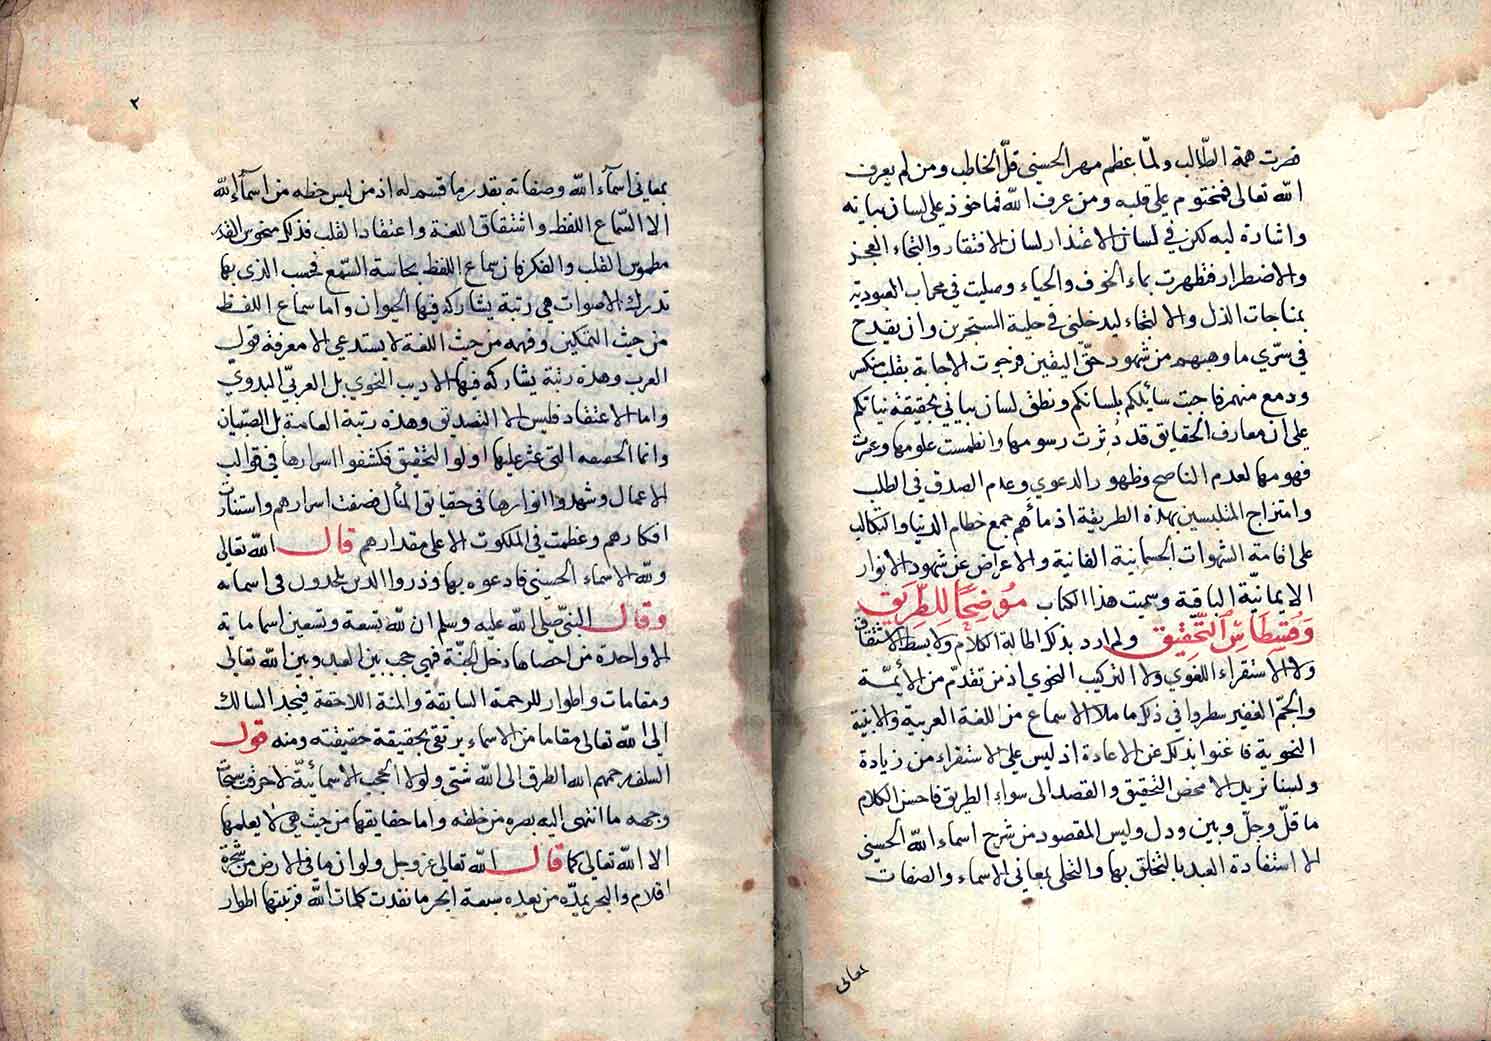 همة الطالب ولما عظم مهر الحسنى قل الخاطب ومن لم يعرف
الله تعالى فمختوم على قلبه ومن عرف الله فماخوذ على لسان بيانه
واشارة ليه لكن في لسان الاعتذار لسان الافتقار والتجاء العجز
والاضطرار فتطهرت بماء الخوف والحياء وصليت في محراب العبودية
بمناجات الذل والالتجاء ليدخلني في حلبة المستجرين وان يقدح
في سري ما وهبهم من شهود حق اليقين فرجوت الاجابة بقلب منكسر
ودمع منهمر فاجبت سايلكم بلسانكم ونطق لسان بياني بحقيقة نياتكم
على ان معارف الحقايق قد دُثرت رسومها وانطمست علومها
فهومها لعدم الناصح وظهور الدعوي وعدم الصدق في الطلب
وامتزاج المتلبسين بهذه الطريقة اذ مأهم جمع حطام الدنيا والتكالب
على اقامة الشهوات الجسمانية الفانية والاعراض عن شهود الانوار
الايمانيّة الباقية وسميت هذا الكتاب مُوَضِحًا لِلطَّرِيقِ
وَقِسْطَاسَ التَّحْقِيقِ ولم ارد بذكر اطالة الكلام ولا بسط الاشتقاق
ولا الاستقراء اللغوي ولا التركيب النحوي اذ من تقدّم من الأيمّة
والجمّ الغفير سطروا في ذكر ما ملا الاسماع من اللغة العربية والابنية
النحوية فاغنوا بذلك عن الاعادة اذ ليس على الاستقراء من زيادة
ولسنا نريد الا محض التحقيق والقصد الى سواء الطريق فاحسن الكلام
ما قلّ وجلّ وبين ودل وليس المقصود من شرح اسماء الله الحسنى
الا استفادة العبد بالتخلق بها والتحلى بمعاني الاسماء والصفات
بمعاني
٢
بمعاني اسمآء الله وصفاته بقدر ما قسم له اذ من ليس حظه من اسمآء الله
الا السّماع اللفظ واشتقاق اللغة واعتقاد القلب فذلك منحوس القدر
مطموس القلب والفكر فان سماع اللفظ بحاسة السّمع فحسب الذي بها
تدرك الاصوات هي رتبة يشاركه فيها الحيوان واما سماع اللفظ
من حيث التمكين وفهمه من حيث اللغة لا يستدعي الا معرفة قول
العرب وهذه رتبة يشاركه فيها الاديب النحوي بل العربيّ البدوي
واما الاعتقاد فليس الا التصديق وهذه رتبة العامة بل الصّبيان
وانما الحصه التى عثر عليها اولوا التحقيق فكشفوا اسرارها في قوالب
الاعمال وشهدوا انوارها في حقايق المثال فصفت اسرارهم واستنارت
افكارهم وعظمت في الملكوت الاعلى مقدارهم قال الله تعالى
ولله الاسماء الحسنى فادعوه بها وذروا الذين يلحدون في اسمائه
وقال النبي صلى الله عليه وسلم ان لله تسعة وتسعين اسما ماية
الا واحدة من احصاها دخل الجنّة فهي حجب بين العبد وبين الله تعالى
ومقامات واطوار للرحمة السابقة والمنّة اللاحقة فيتجد السالك
الى الله تعالى مقاما من الاسماء يرتقي بحقيقة حقيقته ومنه قول
السلف رحمهم الله الطرق الى الله شتى ولولا الحجب الاسمائيّة لاحرقت سبحات
وجهه ما انتهى اليه بصره من خلقه واما حقايقها من حيث هى لا يعلمها
الا الله تعالى كما قال الله تعالى عز وجل ولو ان ما فى الارض من شجرة
اقلام والبحر يمدّه من بعده سبعة ابحر ما نفدت كلمات الله فرتبتها اطوار